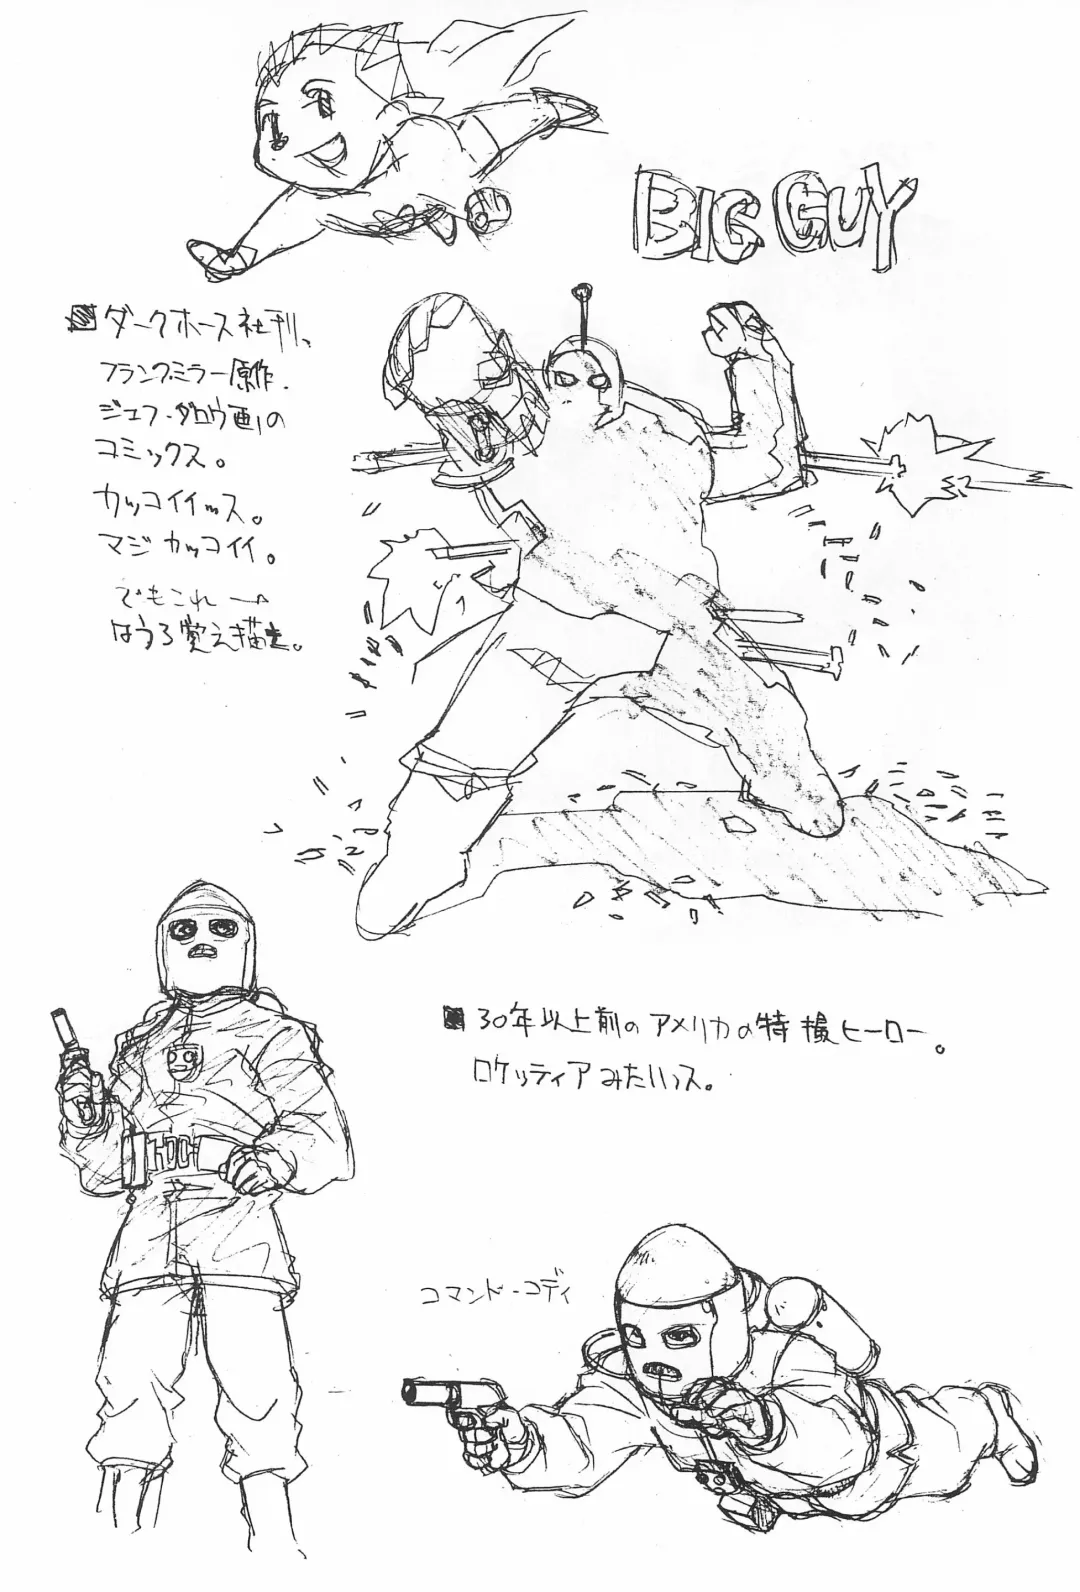 BIG GUY
ダークホース社刊、
フランク・ミラー原作.
ジェフ・ダロウ画の
コミックス。
カッコイイッス。
マジカッコイイ。
でもこれ→
はうろ覚え描き。
30年以上前のアメリカの特撮ヒーロー。
ロケッティアみたいッス。
コマンド・コディ